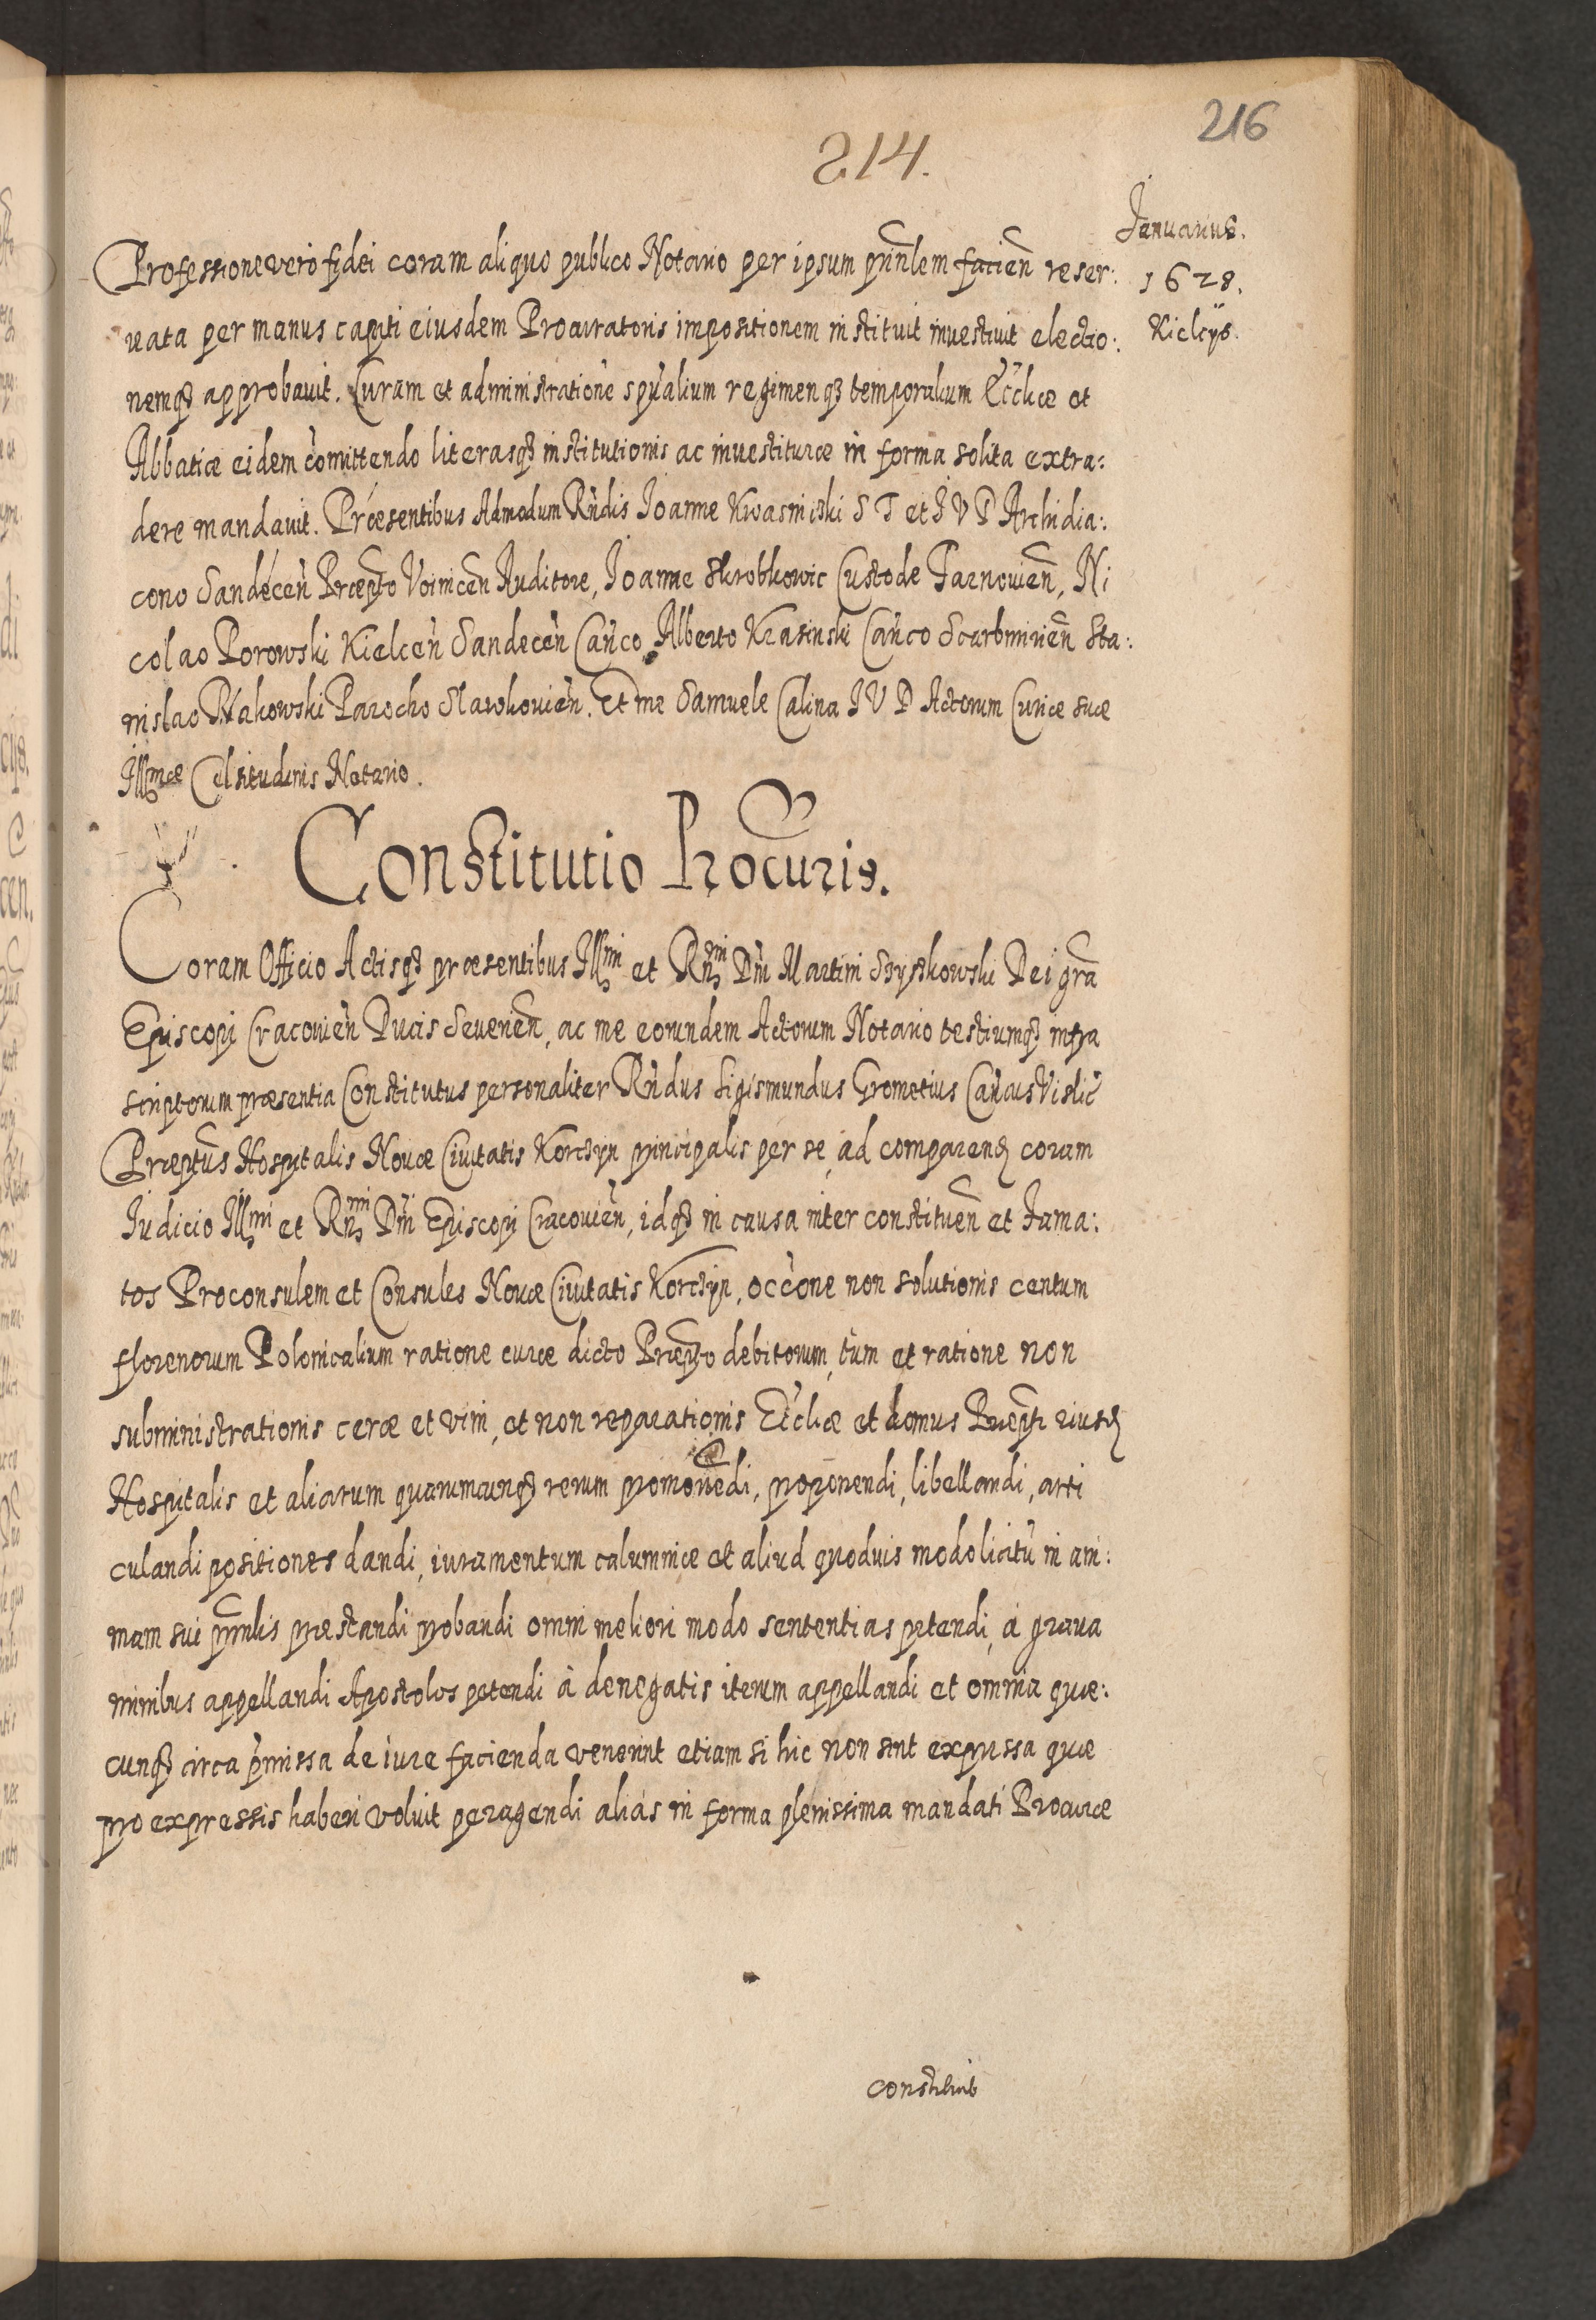 216
214.
Januarius.
1628.
Kielcijs.
Professione vero fidei coram aliquo publico Notario per ipsum prin̄lem facien̄ reser:
uata per manus capiti eiusdem Procuratoris impositionem instituit inuestiuit electio:
nemq₃ approbauit. Curam et administratione spūalium regimenq₃ temporalium Eccl̄iæ et
Abbatiæ eidem com̄ittendo literasq₃ institutionis ac inuestituræ in forma solita extra:
dere mandauit. Præsentibus Admodum Rn̄dis Joanne Kwasniski S T et J V D Archidia:
cono Sandecen̄ Præpto Voinicen̄ Auditore, Joanne Skrobkowic Custode Tarnouien̄, Ni
colao Porowski Kielcen̄ Sandecen̄ Can̄co, Alberto Krasinski Can̄co Scarbmirien̄ Sta:
nislao Parocho Slawkouien̄. Et me Samuele Calina J V D Actorum Curiæ suæ
Ill̄mæ Celsitudinis Notario.
Constitutio Procūris.
Coram Officio Actisq₃ præsentibus Illmi et Rm̄i Dn̄i Martini Szyszkowski Dei gr̄a
Episcopi Cracouien̄ Ducis Seueriēn, ac me eorundem Actorum Notario testiumq₃ infra
scriptorum præsentia Constitutus personaliter Rn̄dus Sigismundus Grometius Can̄cus Vislic̄
Præptūs Hospitalis Nouæ Ciuitatis Korczyn principalis per se, ad comparend̄ coram
Judicio Illmi et Rmi Dn̄i Episcopi Cracouien̄, idq₃ in causa inter constituēn et Fama:
tos Proconsulem et Consules Nouæ Ciuitatis Korczyn, occ̄one non solutionis centum
florenorum Polonicalium ratione curæ dicto Præpto debitorum, tum et ratione non
subministrationis ceræ et vini, et non reparationis Eccl̄iæ et domus Præpti eiusd̄
Hospitalis et aliarum quarumcunq₃ rerum promouēdi, proponendi, libellandi, arti
culandi positiones dandi, iuramentum calumniæ et aliud quoduis modo licitū in ani:
mam sui prin̄lis præstandi probandi omni meliori modo sententias petendi, à graua
minibus appellandi Apostolos petendi à denegatis iterum appellandi et omnia quæ:
cunq₃ circa p̄missa de iure facienda venerint etiam si hic non sint expressa quæ
pro expressis haberi voluit peragendi aliàs in forma plenissima mandati Procuræ
constituit